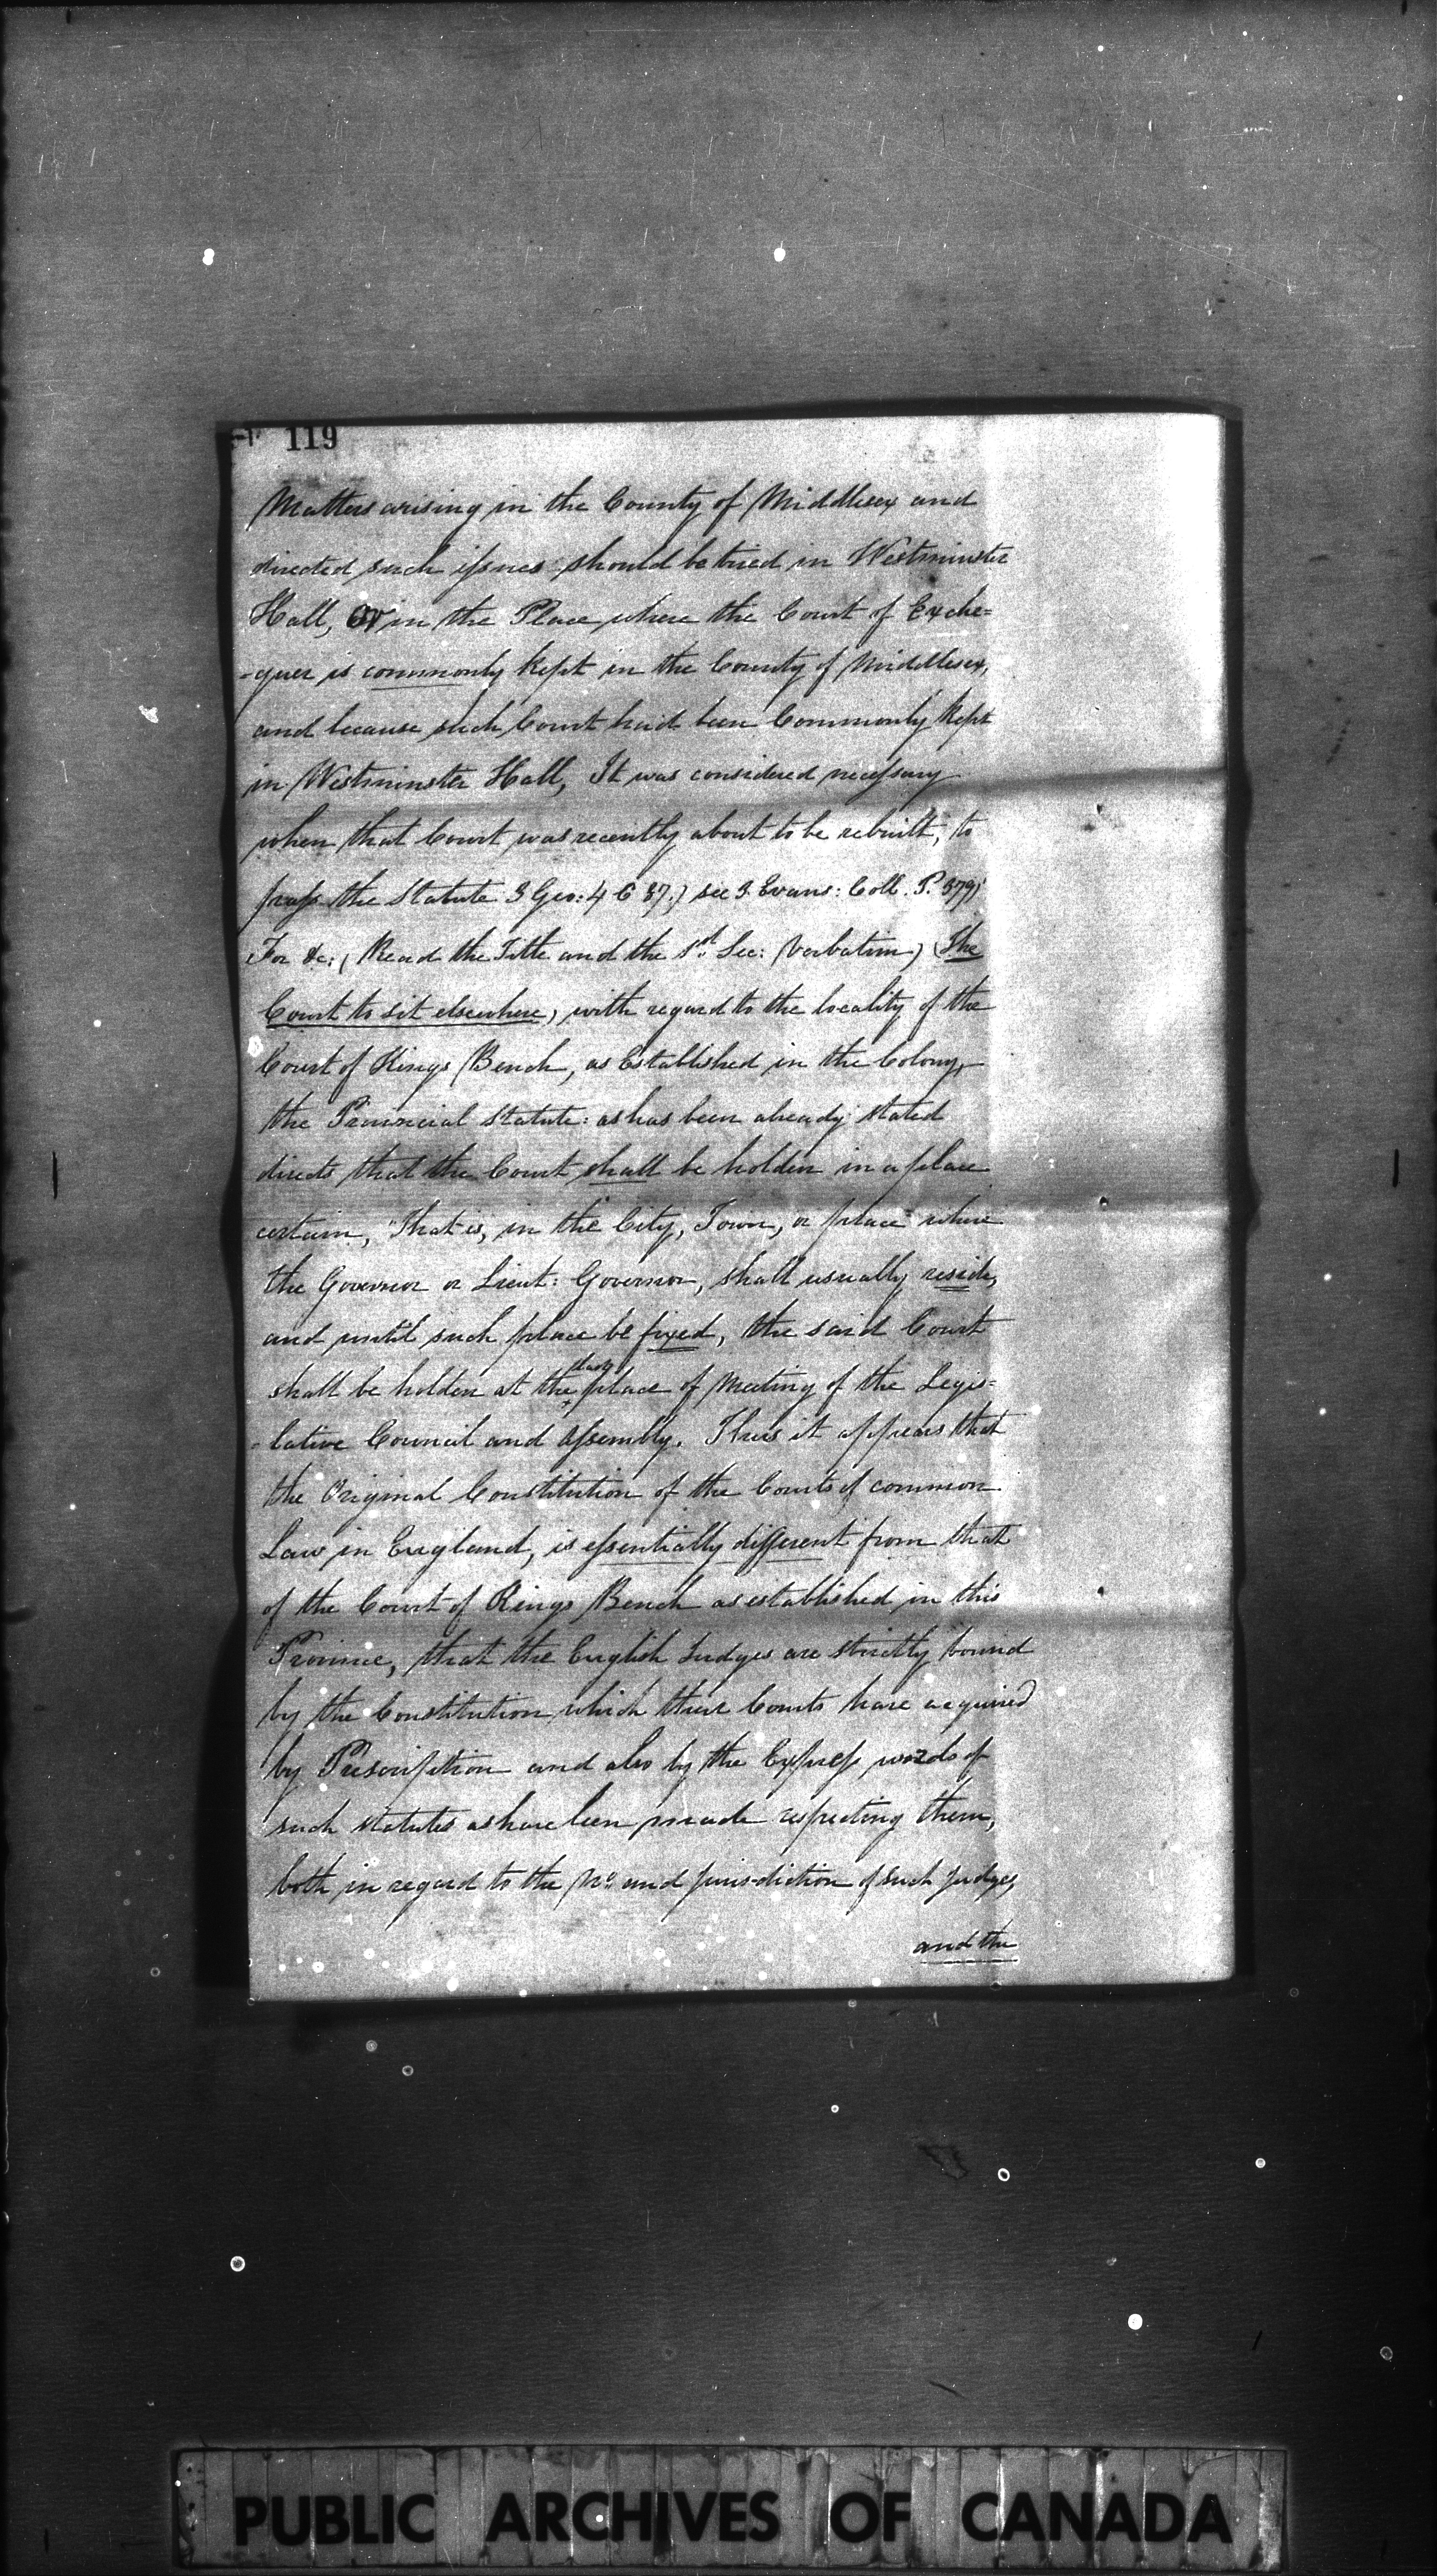 119
Matters arising in the County of Middlesex and
directed such issues should be tried in Westminster
Hall, or in the Place where the Court of Exche=
-quer is commonly kept in the County of Middlesex,
and because such Court had been Commonly Kept
in Westminster Hall, It was considered necessary
when that Court was recently about to be rebuilt, to
pass the Statute 3 Geo: 4 C 87.) see 3. Evans: Coll. P. 379)
For &c: (Read the Title and the 1st Sec: Verbatim) (The
Court to sit elsewhere) with regard to the locality of the
Court of Kings Bench, as Established in the Colony,
the Provincial Statute: as has been already stated
directs that the Court shall be holden in a place
certain, "That is, in the City, Town, or place" where
the Governor or Lieut: Governor, shall usually reside,
and until such place be fixed, the said Court
shall be holden at the place of Meeting of the Legis=
=lative Council and Assembly. Thus it appears that
the Original Constitution of the Courts of common
Law in England, is essentially different from that
of the Court of Kings Bench as established in this
Province, that the English Judges are strictly bound
by the Constitution which their Courts have acquired
by Prescription and also by the Express words of
such statutes as have been made respecting them,
both in regard to the No. and jurisdiction of such Judges,
and the
PUBLIC ARCHIVES OF CANADA